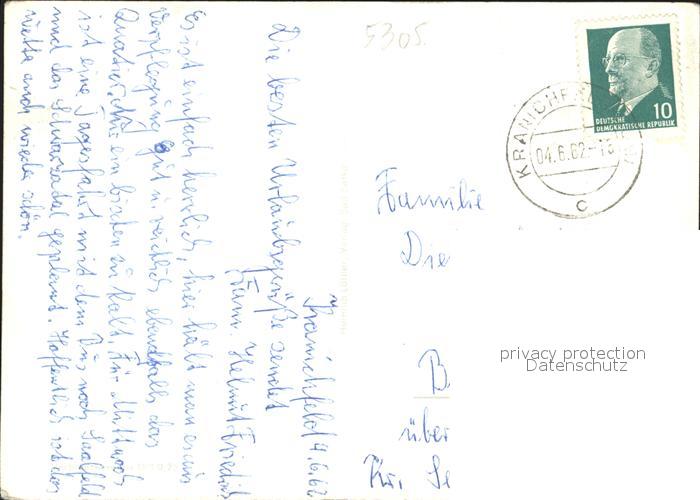 5305.
KRANICHFELD
04.6.62-18
c
10
DEUTSCHE
DEMOKRATISCHE REPUBLIK
Kranichfeld, 4.6.62
Die besten Urlaubsgrüße sendet
Fam. Helmut Friedrich
Es ist einfach herrlich, hier hält man es aus
Verpflegung gut u. reichlich ebenfalls das
Quatier, nur ein bischen zu kalt. Für Mittwoch
ist eine Tagesfahrt mit dem Bus nach Saalfeld
und das Schwarzatal geplant. Hoffentlich ist das
Wetter auch wieder schön.
Familie
Die
B
über
Kr. Se
privacy protection
Datenschutz